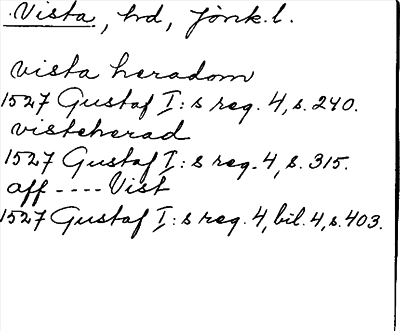 Vista, hd, Jönk.l.
vista heradom
1527 Gustaf I:s reg. 4, s.240.
visteherad
1527 Gustaf I:s reg. 4, s.315.
aff ---- Vist
1527 Gustaf I:s reg. 4, bil.4, s.403.